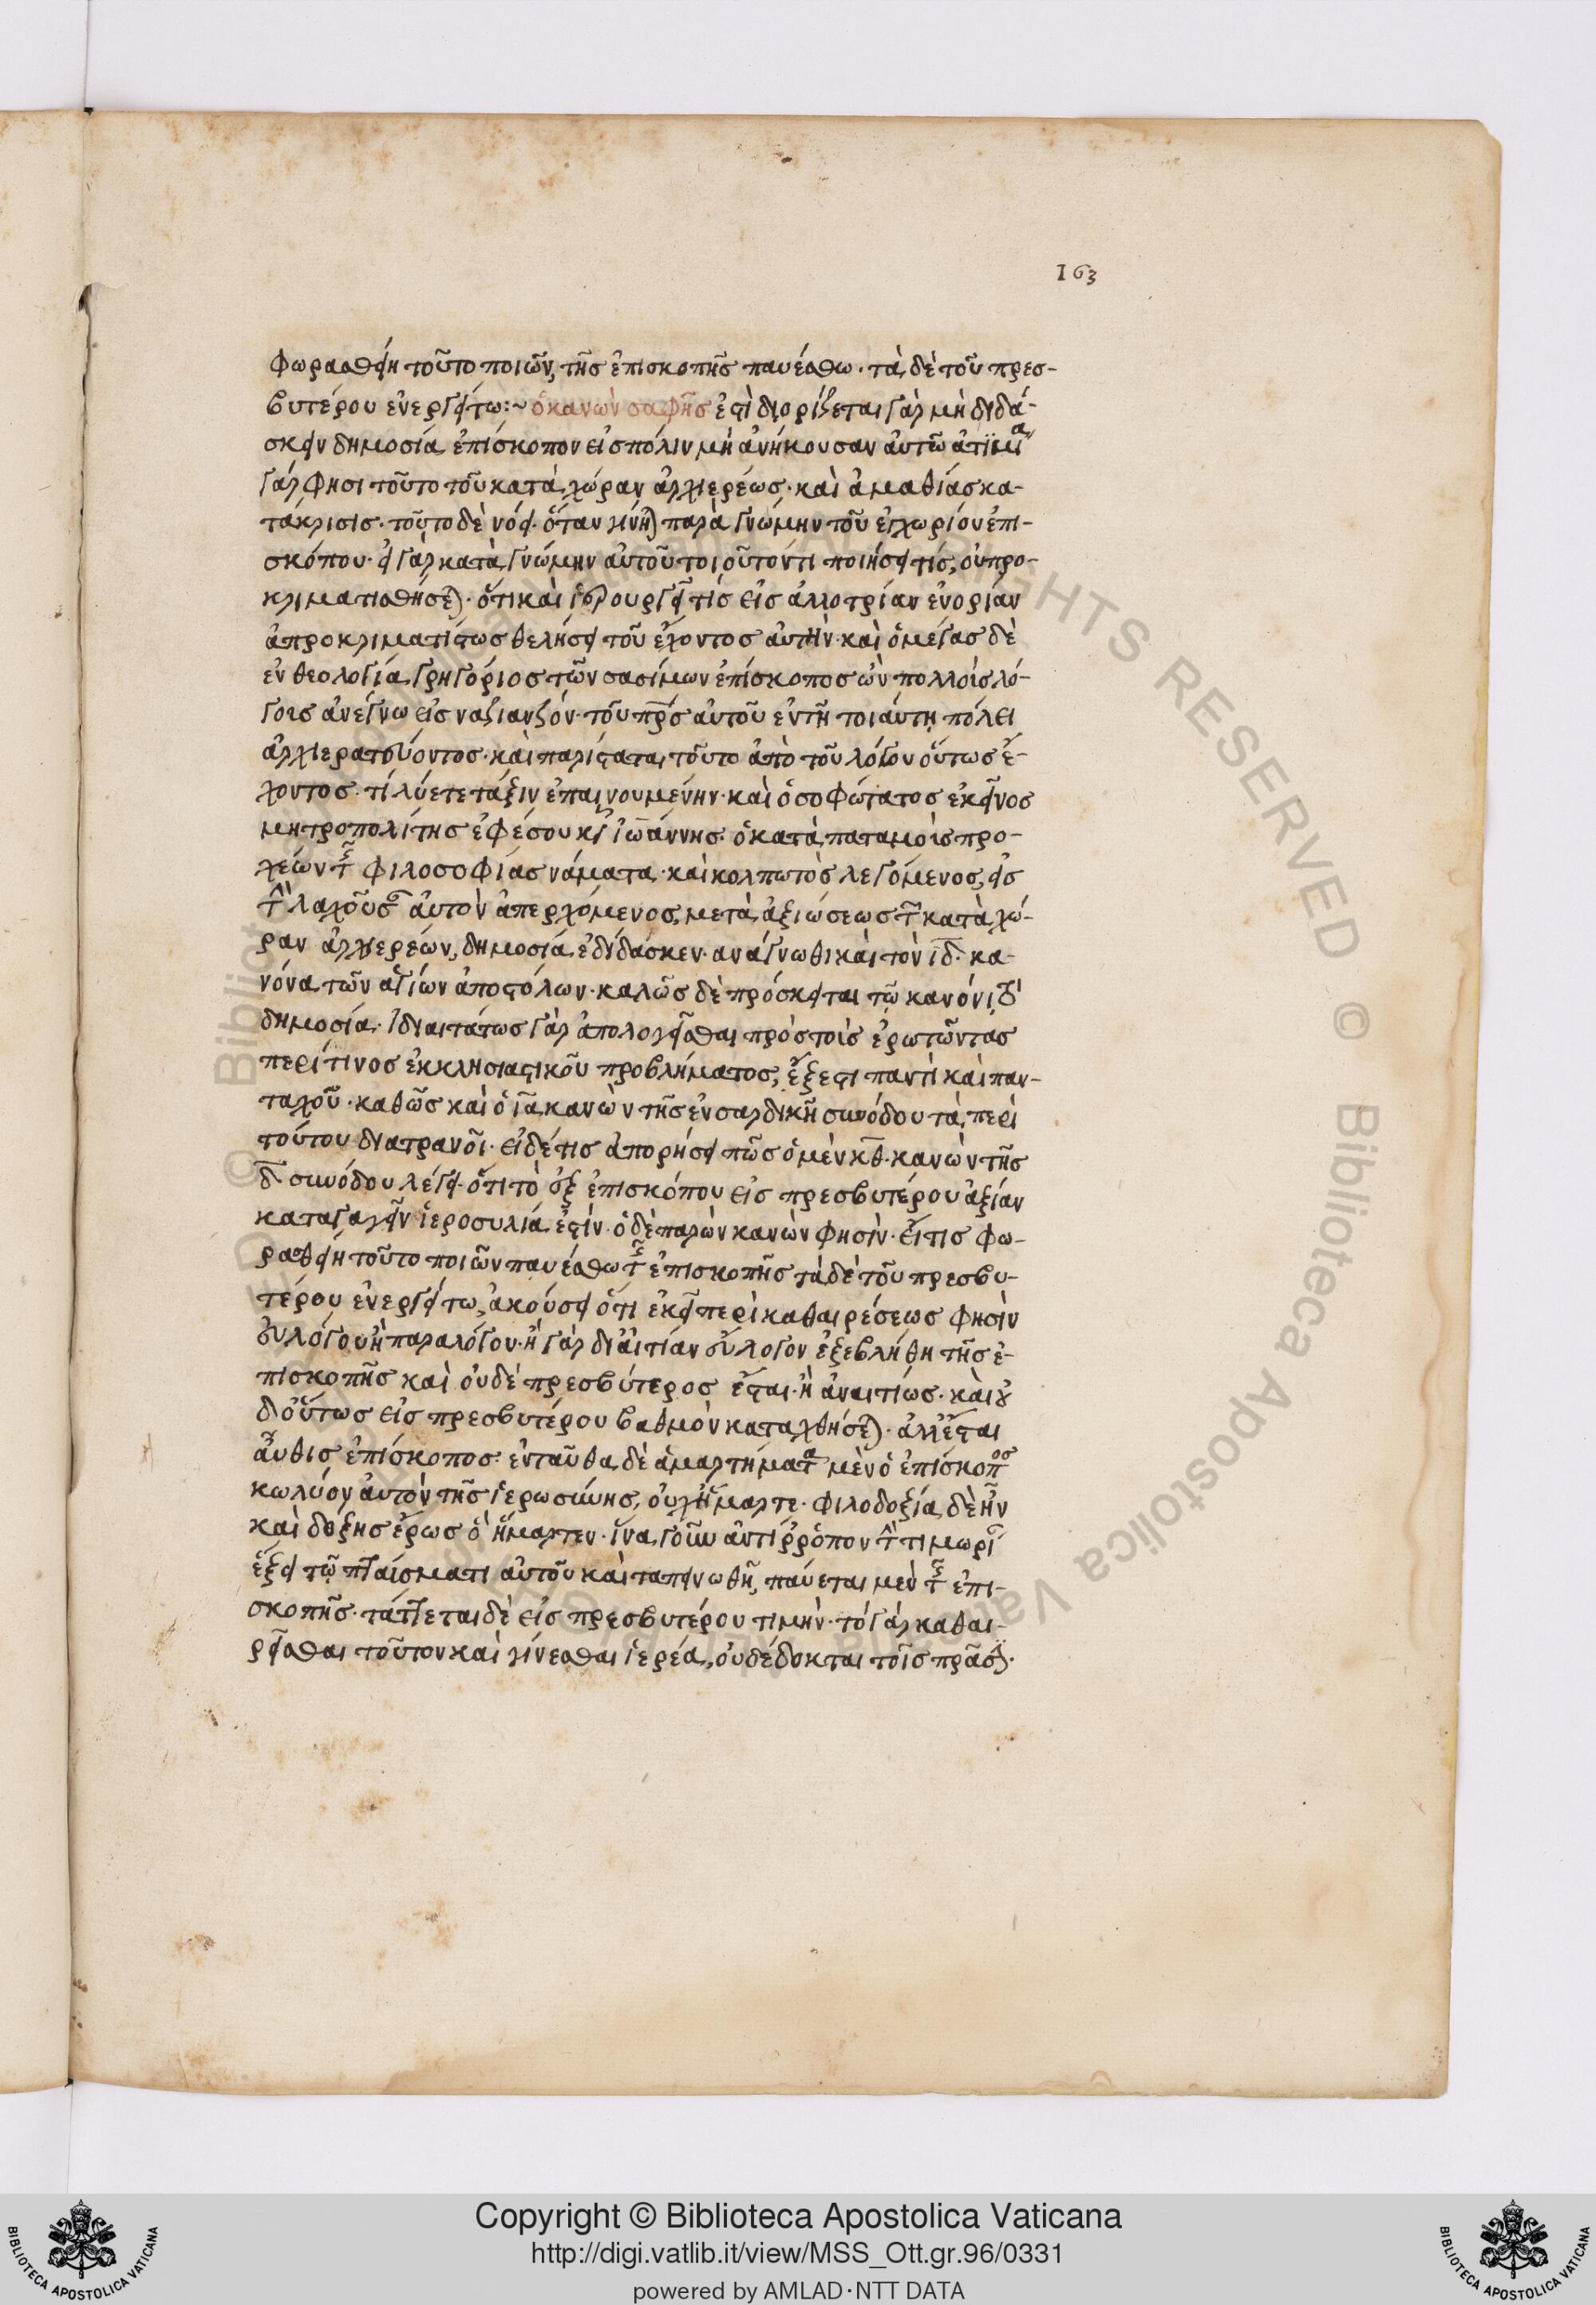 163
φωραθείη τοῦτο ποιῶν, τῆς ἐπισκοπῆς παυέσθω· τὰ δὲ τοῦ πρεσ-
βυτέρου ἐνεργείτω:~ ὁ κανὼν σαφής ἐστὶ διορίζεται γὰρ μὴ διδά-
σκειν δημοσία ἐπίσκοπον εἰς πόλιν μὴ ἀνήκουσαν αὐτῶ ἀτιμία
γάρ φησι τοῦτο τοῦ κατὰ χώραν ἀρχιερέως· καὶ ἀμαθίας κα-
τάκρισις· τοῦτο δὲ νόει· ὅταν γίνηται παρὰ γνώμην τοῦ ἐγχωρίου ἐπι-
σκόπου· εἰ γὰρ κατὰ γνώμην αὐτοῦ τοιοῦτόν τι ποιήσει τίς, οὐ προ-
κριματισθήσεται· ὅτι καὶ ἱερουργεῖ τίς εἰς ἀλλοτρίαν ἐνορίαν
ἀπροκριματίστως θελήσει τοῦ ἔχοντος αὐτήν· καὶ ὁ μέγας δὲ
ἐν θεολογία γρηγόριος τῶν σασίμων ἐπίσκοπος ὢν πολλοῖς λό-
γοις ἀνέγνω εἰς ναζιανζόν· τοῦ πρς αὐτοῦ ἐν τῆ τοιάυτη πόλει
ἀρχιερατεύοντος· καὶ παρίσταται τοῦτο ἀπὸ τοῦ λόγου οὕτως ἔ-
χοντος· τί λύετε τάξιν ἐπαινουμένην· καὶ ὁ σοφώτατος ἐκεῖνος
μητροπολίτης ἐφέσου κς ἰωάννης· ὁ κατὰ παταμοὶς προ-
χέων τῆς φιλοσοφίας νάματα· καὶ κολπωτὸς λεγόμενος, εἰς
τὴν λαχοῦσαν αὐτὸν ἀπερχόμενος, μετὰ ἀξιώσεως τῶν κατὰ χώ-
ραν ἀρχιερέων, δημοσία ἐδίδασκεν· ανάγνωθι καὶ τὸν ιδ· κα-
νόνα τῶν ἁγίων ἀποστόλων· καλῶς δὲ πρόσκειται τῶ κανόνι τὸ
δημοσία· ἰδιαιτάτως γὰρ ἀπολογεῖσθαι πρὸς τοὶς ἐρωτῶντας
περί τινος ἐκκλησιαστικοῦ προβλήματος, ἔξεστι παντὶ καὶ παν-
ταχοῦ· καθὼς καὶ ὁ ια κανὼν τῆς ἐν σαρδικῆ συνόδου τὰ περὶ
τούτου διατρανοῖ· εἰ δέ τις ἀπορήσει πῶς ὁ μὲν κθ· κανὼν τῆς
δ συνόδου λέγει· ὅτι τὸ ἐξ ἐπισκόπου εἰς πρεσβυτέρου ἀξίαν
καταγαγεῖν ἱεροσυλία ἐστίν· ὁ δὲ παρὼν κανὼν φησὶν· εἴ τις φω-
ραθείη τοῦτο ποιῶν παυέσθω τῆς ἐπισκοπῆς τὰ δὲ τοῦ πρεσβυ-
τέρου ἐνεργείτω, ἀκούσει ὅτι ἐκεῖ περὶ καθαιρέσεως φησὶν
εὐλόγου ἢ παραλόγου· ἢ γὰρ δι αἰτίαν εὔλογον ἐξεβλήθη τῆς ἐ-
πισκοπῆς καὶ οὐδὲ πρεσβύτερος ἔσται· ἢ ἀναιτίως· καὶ οὐ
δι οὕτως εἰς πρεσβυτέρου βαθμὸν καταχθήσεται· ἀλλ ἔσται
αὖθις ἐπίσκοπος· ἐνταῦθα δὲ ἁμαρτήματα μὲν ὁ ἐπίσκοπος
κωλύον αὐτὸν τῆς ἱερωσύνης, οὐχ ἥμαρτε· φιλοδοξία δὲ ἦν
καὶ δόξης ἔρως ὃ ἥμαρτεν· ἵνα γοῦν ἀντίρροπον τὴν τιμωρίαν
ἕξει τῶ πταίσματι αὐτοῦ καὶ ταπεινωθῆ, παύεται μὲν τῆς ἐπι-
σκοπῆς· τάττεται δὲ εἰς πρεσβυτέρου τιμήν· τὸ γὰρ καθαι-
ρεῖσθαι τοῦτον καὶ γίνεσθαι ἱερέα, οὐ δέδοκται τοῖς πρᾶσι·
Copyright © Biblioteca Apostolica Vaticana
http://digi.vatlib.it/view/MSS_Ott.gr.96/0331
powered by AMLAD·NTT DATA
BIBLIOTECA APOSTOLICA VATICANA
BIBLIOTECA APOSTOLICA VATICANA